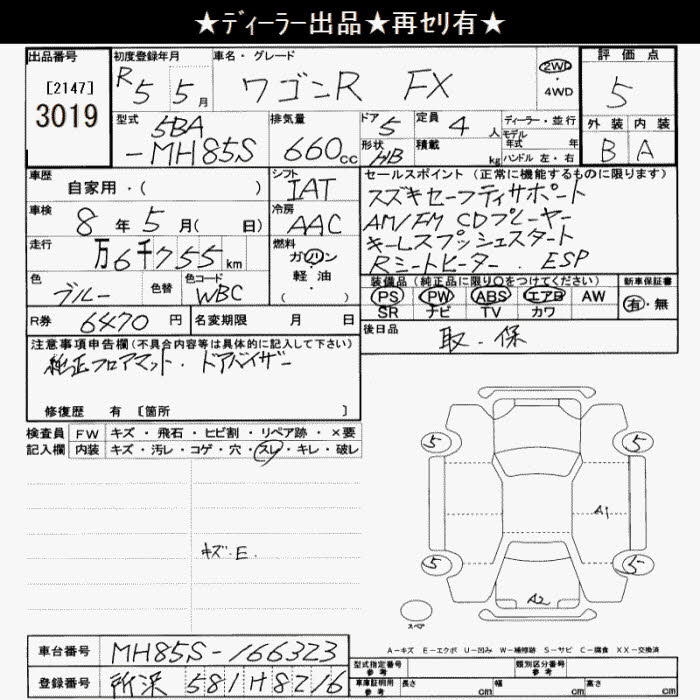 ★ディーラー出品★再セリ有★
出品番号
[2147]
3019
初度登録年月
R5 5月
車名・グレード
ワゴンR FX
2WD
・4WD
評価点
5
外装 内装
B A
型式
5BA
-MH85S
排気量
660cc
ドア
5
形状
HB
定員
4人
積載
kg
ディーラー・並行
モデル
年式 年
ハンドル 左・右
車歴
自家用・( )
シフト
IAT
車検
8年5月( 日)
冷房
AAC
走行
万6千755km
燃料
ガソリン
・軽・油
( )
色
ブルー
色替
色コード
WBC
R券 6470円
名変期限 月 日
セールスポイント(正常に機能するものに限ります)
スズキセーフティサポート
AM/FM CDプレーヤー
キーレスプッシュスタート
Rミートヒーター. ESP
装備品(純正品に限り○をつけてください)
PS PW ABS エアB AW
SR ナビ TV カワ
新車保証書
有・無
後日品
取.保
注意事項申告欄(不具合内容等は具体的に記入して下さい)
純正フロアマット. ドアバイザー
修復歴 有 [箇所 ]
検査員 FW キズ・飛石・ヒビ割・リペア跡・×要
記入欄 内装 キズ・汚レ・コゲ・穴・スレ・キレ・破レ
キズ.E.
5 5
A1
5 5
A2
スペア
A-キズ E-エクボ U-凹み W-補修跡 S-サビ C-腐食 XX-交換済
車台番号 MH85S-166323
登録番号 所沢 581 H8216
型式指定番号
参考
類別区分番号
参考
車庫証明用
参考
長さ cm 幅 cm 高さ cm